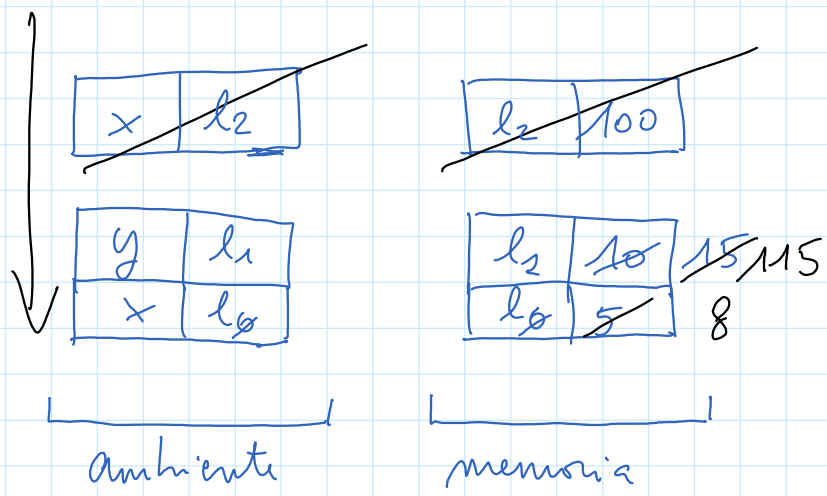 x l2 l2 100
y l1 l1 10 15 115
x l0 l0 5 8
ambiente memoria